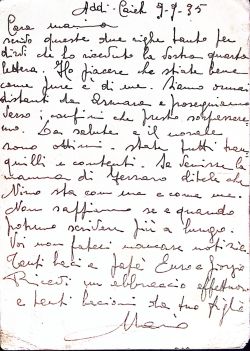 Addi-Caieh 9-9-35
Cara mamma
scrivo queste due righe tanto per
dirti che ho ricevuto la vostra quarta
lettera. Ho piacere che state bene
come pure è di me. Siamo ormai
distanti da Asmara e proseguiamo
verso i confini che presto sorpasseremo
La salute e il morale
sono ottimi state tutti tran
quilli e contenti. Se venisse la
mamma di Ferraro ditele che
Nino sta con me e come me.
Non sappiamo se e quando
potremo scrivere più a lungo.
Voi non fateci mancare notizie
Tanti baci a papà Enzo e Giorgio
Ricevi un abbraccio affettuoso
e tanti bacioni da tuo figlio
Mario